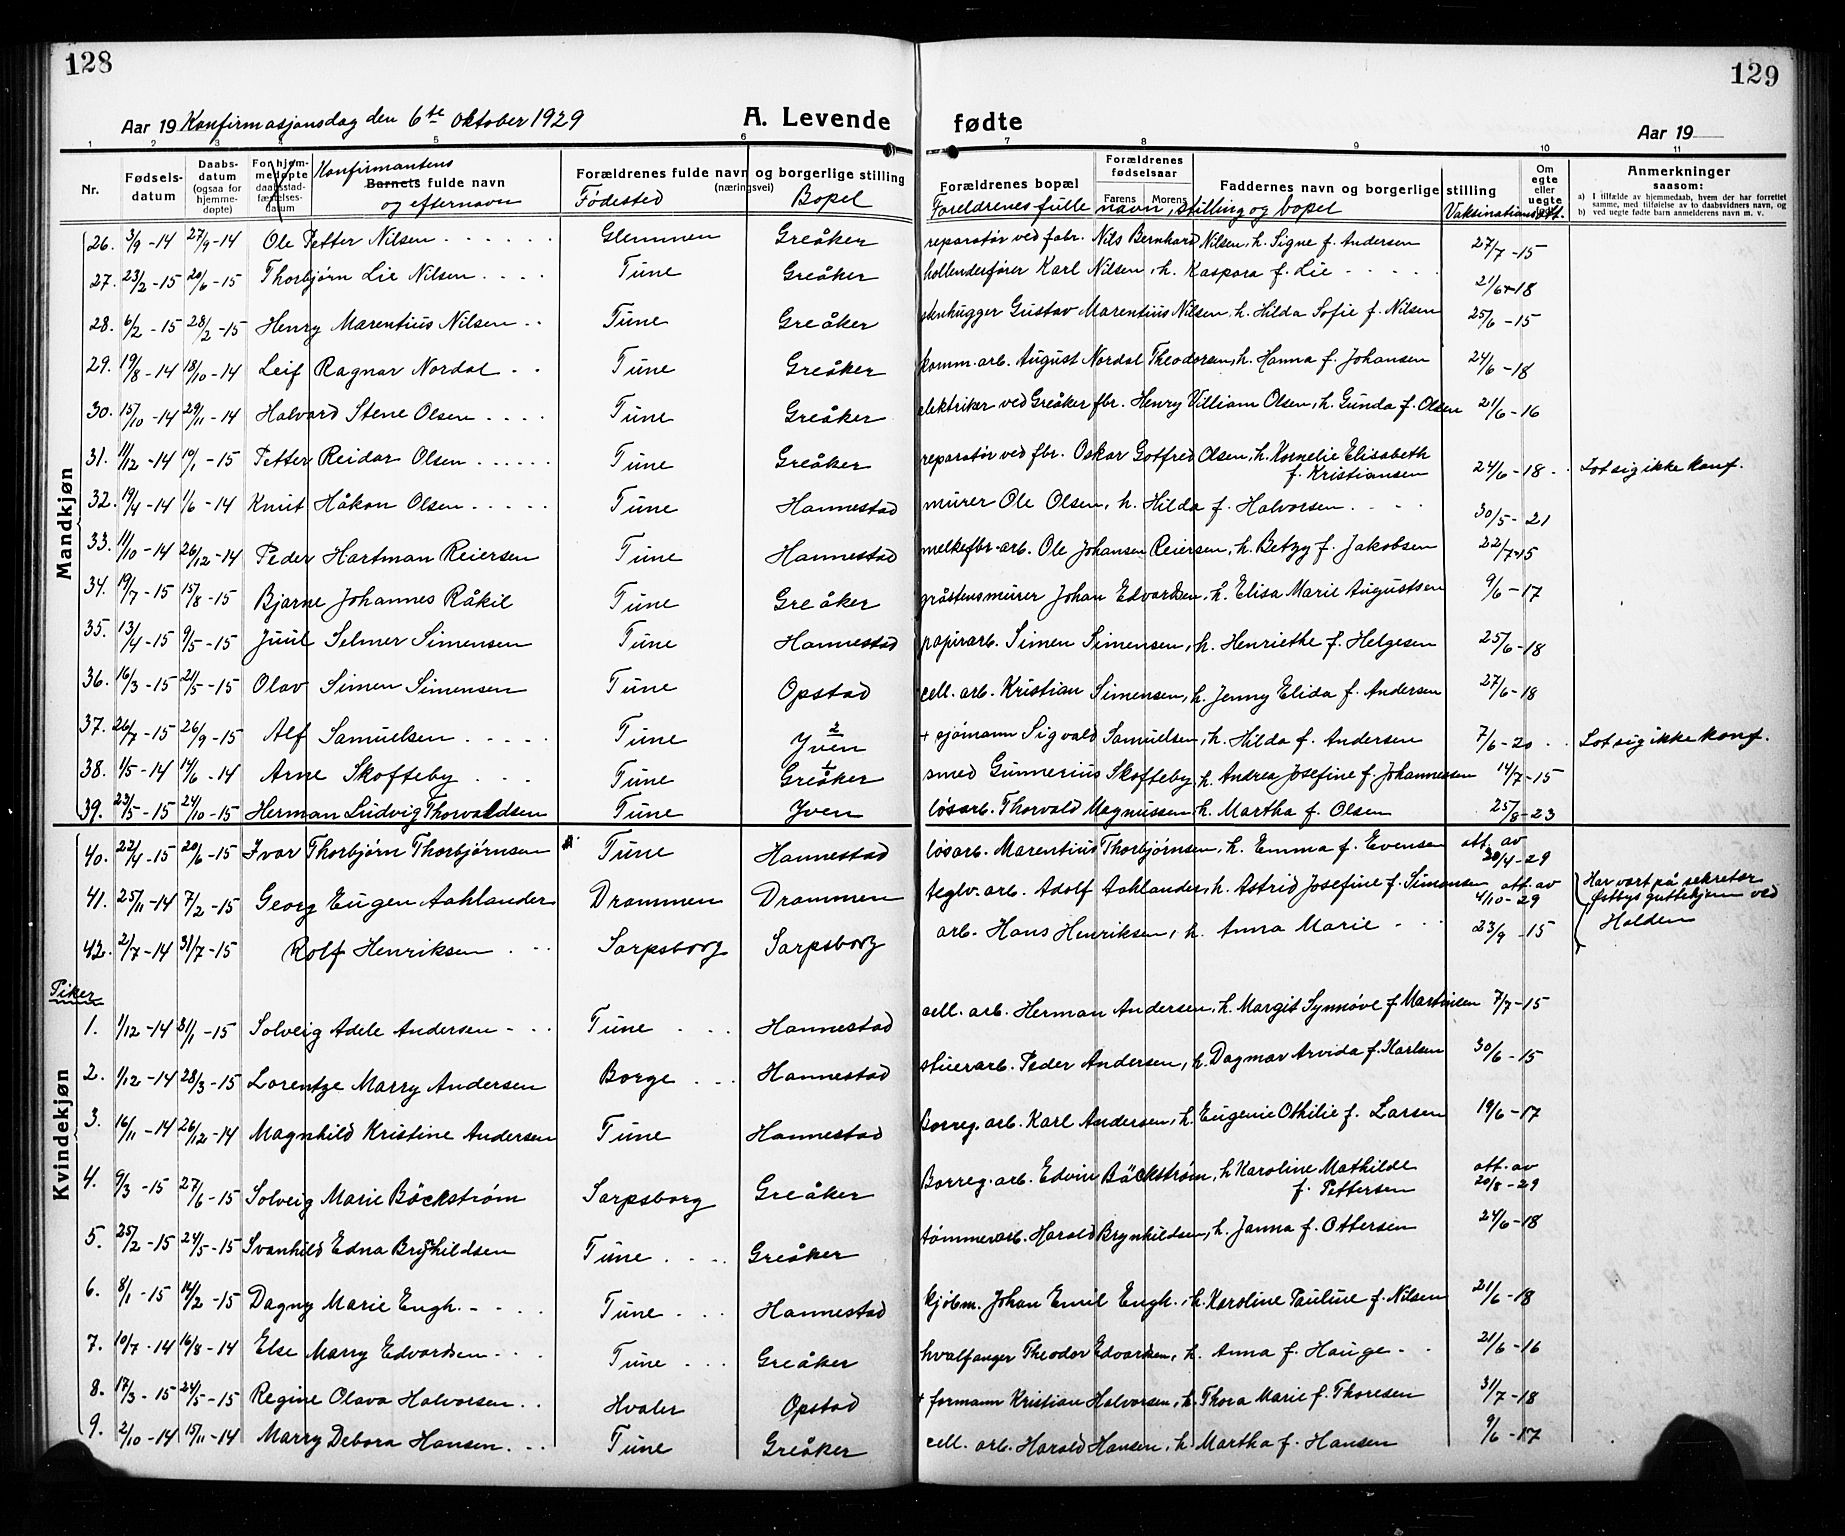 128
129
Aar 19 Konfirmasjonsdag den 6te oktober 1929
A. Levende
fødte
Aar 19
1 2 3 4 5 6 7 8 9 10 11
Nr.
Fødsels-datum
Daabs-datum (ogsaa for hjemme-døpte)
For hjem-medøpte daabsstad-fæstelses-datum
Konfirmantens
Barnets fulde navn
og efternavn
Forældrenes fulde navn og borgerlige stilling
(næringsvei)
Fødested Bopel
Forældrenes bopæl
Forældrenes fødselsaar
Farens Morens
Faddernes navn og borgerlige stilling
Foreldrenes fulle navn, stilling og bopel
Vaksinationsatt.
Om egte eller uegte født
Anmerkninger
saasom:
a) I tilfælde av hjemmedaab, hvem der har forrettet samme, med tilføielse av to daabsvidners navn, og
b) ved uegte fødte barn anmelderens navn m. v.
Mandkjøn
26. 3/9-14 27/9-14 Ole Petter Nilsen Glemmen Greåker reparatør ved fabr. Nils Bernhard Nilsen, h. Signe f. Andersen 27/7-15
27. 23/2-15 20/6-15 Thorbjørn Lie Nilsen Tune Greåker hollenderfører Karl Nilsen, h. Kaspora f. Lie 21/6-18
28. 6/2-15 28/2-15 Henry Marentius Nilsen Tune Greåker stenhugger Gustav Marentius Nilsen, h. Hilda Sofie f. Nilsen 25/6-15
29. 19/8-14 18/10-14 Leif Ragnar Nordal Tune Greåker komm. arb. August Nordal Theodorsen, h. Hanna f. Johansen 24/6-18
30. 15/10-14 29/11-14 Halvard Stene Olsen Tune Greåker elektriker ved Greåker fbr. Henry Villiam Olsen, h. Gunda f. Olsen 21/6-16
31. 11/12-14 10/1-15 Petter Reidar Olsen Tune Greåker reparatør ved fbr. Oskar Gotfred Olsen, h. Kornelie Elisabeth
f. Kristiansen 24/6-18 Lot sig ikke konf.
32. 19/4-14 1/6-14 Knut Håkon Olsen Tune Hannestad murer Ole Olsen, h. Hilda f. Halvorsen 30/5-21
33. 11/10-14 26/12-14 Peder Hartman Reiersen Tune Hannestad melkefbr.-arb. Ole Johansen Reiersen, h. Betzy f. Jakobsen 22/7-15
34. 19/7-15 15/8-15 Bjarne Johannes Råkil Tune Greåker gråstensmurer Johan Edvardsen, h. Elisa Marie Augustsen 9/6-17
35. 13/4-15 9/5-15 Juul Selmer Simensen Tune Hannestad papirarb. Simen Simensen, h. Henriethe f. Helgesen 25/6-18
36. 16/3-15 21/5-15 Olav Simen Simensen Tune Opstad cell. arb. Kristian Simensen, h. Jenny Elida f. Andersen 27/6-18
37. 26/7-15 26/9-15 Alf Samuelsen Tune Yven + sjømann Sigvald Samuelsen, h. Hilda f. Andersen 7/6-20 Lot sig ikke konf.
38. 1/5-14 14/6-14 Arne Skofteby Tune Greåker smed Gunnerius Skofteby, h. Andrea Josefine f. Johannessen 14/7-15
39. 23/5-15 24/10-15 Herman Ludvig Thorvaldsen Tune Yven løsarb. Thorvald Magnussen h. Martha f. Olsen 25/8-23
40. 22/4-15 20/6-15 Ivar Thorbjørn Thorbjørnsen Tune Hannestad løsarb. Marentius Thorbjørnsen, h. Emma f. Evensen att. av 30/4-29
41. 25/11-14 7/2-15 Georg Eugen Aahlander Drammen Drammen teglv. arb. Adolf Aahlander, h. Astrid Josefine f. Simonsen att. av 4/10-29 Har vært på sekretær
Østbys guttehjem ved
Halden
42. 2/7-14 31/7-15 Rolf Henriksen Sarpsborg Sarpsborg arb. Hans Henriksen, h. Anna Marie 23/9-15
Piker
Kvindekjøn
1. 1/12-14 31/1-15 Solveig Adele Andersen Tune Hannestad cell. arb. Herman Andersen, h. Margit Synnøve f. Martinsen 7/7-15
2. 1/12-14 28/3-15 Lorentze Marry Andersen Borge Hannestad stuerarb. Peder Andersen, h. Dagmar Arvida f. Karlsen 30/6-15
3. 16/11-14 26/12-14 Magnhild Kristine Andersen Tune Hannestad Borreg. arb. Karl Andersen, h. Eugenie Othilie f. Larsen 19/6-17
4. 9/3-15 27/6-15 Solveig Marie Bäckstrøm Sarpsborg Greåker Borreg. arb. Edvin Bäckstrøm, h. Karoline Mathilde
f. Pettersen att. av 20/8-29
5. 25/2-15 24/5-15 Svanhild Edna Brynhildsen Tune Greåker tømmerarb. Harald Brynhildsen, h. Janna f. Ottersen 24/6-18
6. 8/1-15 14/2-15 Dagny Marie Engh. Tune Hannestad kjøbm. Johan Emil Engh., h. Karoline Pauline f. Nilsen 21/6-18
7. 10/7-14 16/8-14 Else Marry Edvardsen Tune Greåker hvalfanger Theodor Edvardsen, h. Anna f. Hauge 21/6-16
8. 17/3-15 24/5-15 Regine Olava Halvorsen Hvaler Opstad + formann Kristian Halvorsen, h. Thora Marie f. Thoresen 31/7-18
9. 2/10-14 15/11-14 Marry Debora Hansen Tune Greåker cell. arb. Harald Hansen, h. Martha f. Hansen 9/6-17